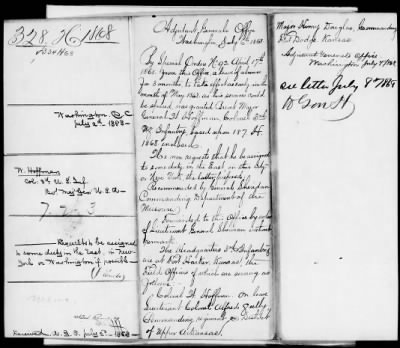 328 H 1868
Washington D.C.
July 2d 1868.
W. Hoffman
Col. 3d U.S. Inf.
Bvt Maj Gen U.S.A.
7 2 3
Requests to be assigned
to some duty in the East, in New
York or Washington if possible
Received A.G.O. July 3d 1868
Adjutant General's Office
Washington July 1868.
By Special Orders No 92 April 17th
1868. from this Office, a leave of absence
for six months, to take effect as early in the
month of May 1868. as his services could
be spared was granted Brevet Major
General W. Hoffman, Colonel 3rd
U.S. Infantry, based upon 187 H.
1868 enclosed.
He now requests that he be assigned
to some duty in the East in this City
or New York the latter preferred.
Recommended by General Sheridan
Commanding Department of the
Missouri.
Forwarded to this Office by
Lieutenant General Sherman without
remark.
The Headquarters 3rd Infantry
are at Fort Harker, Kansas, the
Field Officers of which are serving as
follows:
Colonel W. Hoffman. on leave
Lieutenant Colonel Alfred Sully
Commanding regiment & District
of Upper Arkansas.
Major Henry Douglas, Commanding
Fort Dodge, Kansas
Adjutant General's Office
Washington July 1868
see letter July 8th 1868
to Gen H